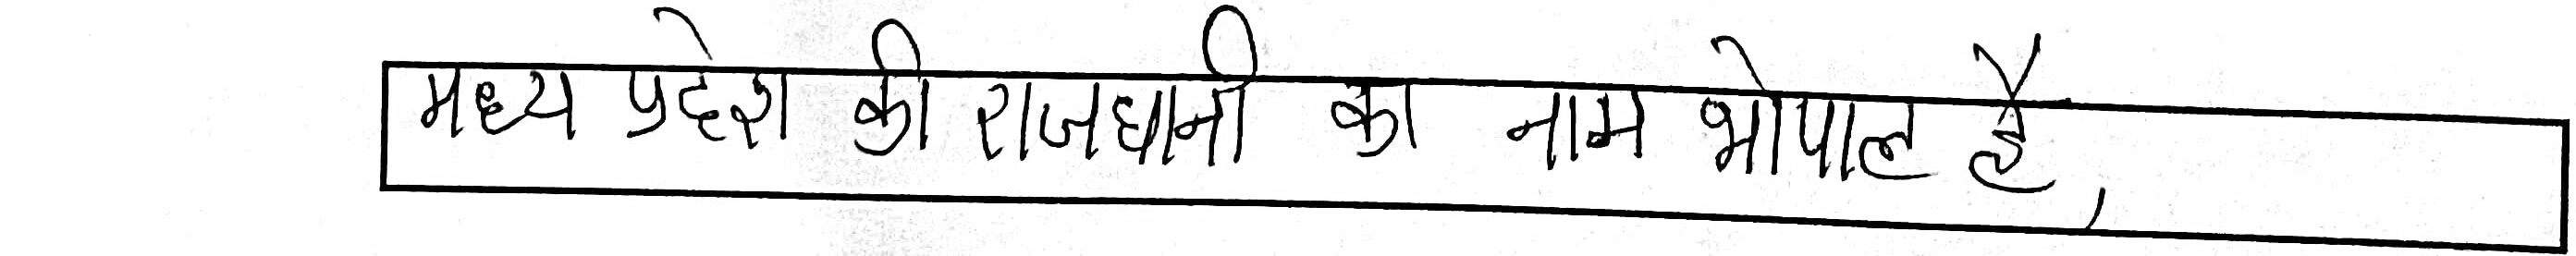 मध्य प्रदेश की राजधानी का नाम भोपाल है,